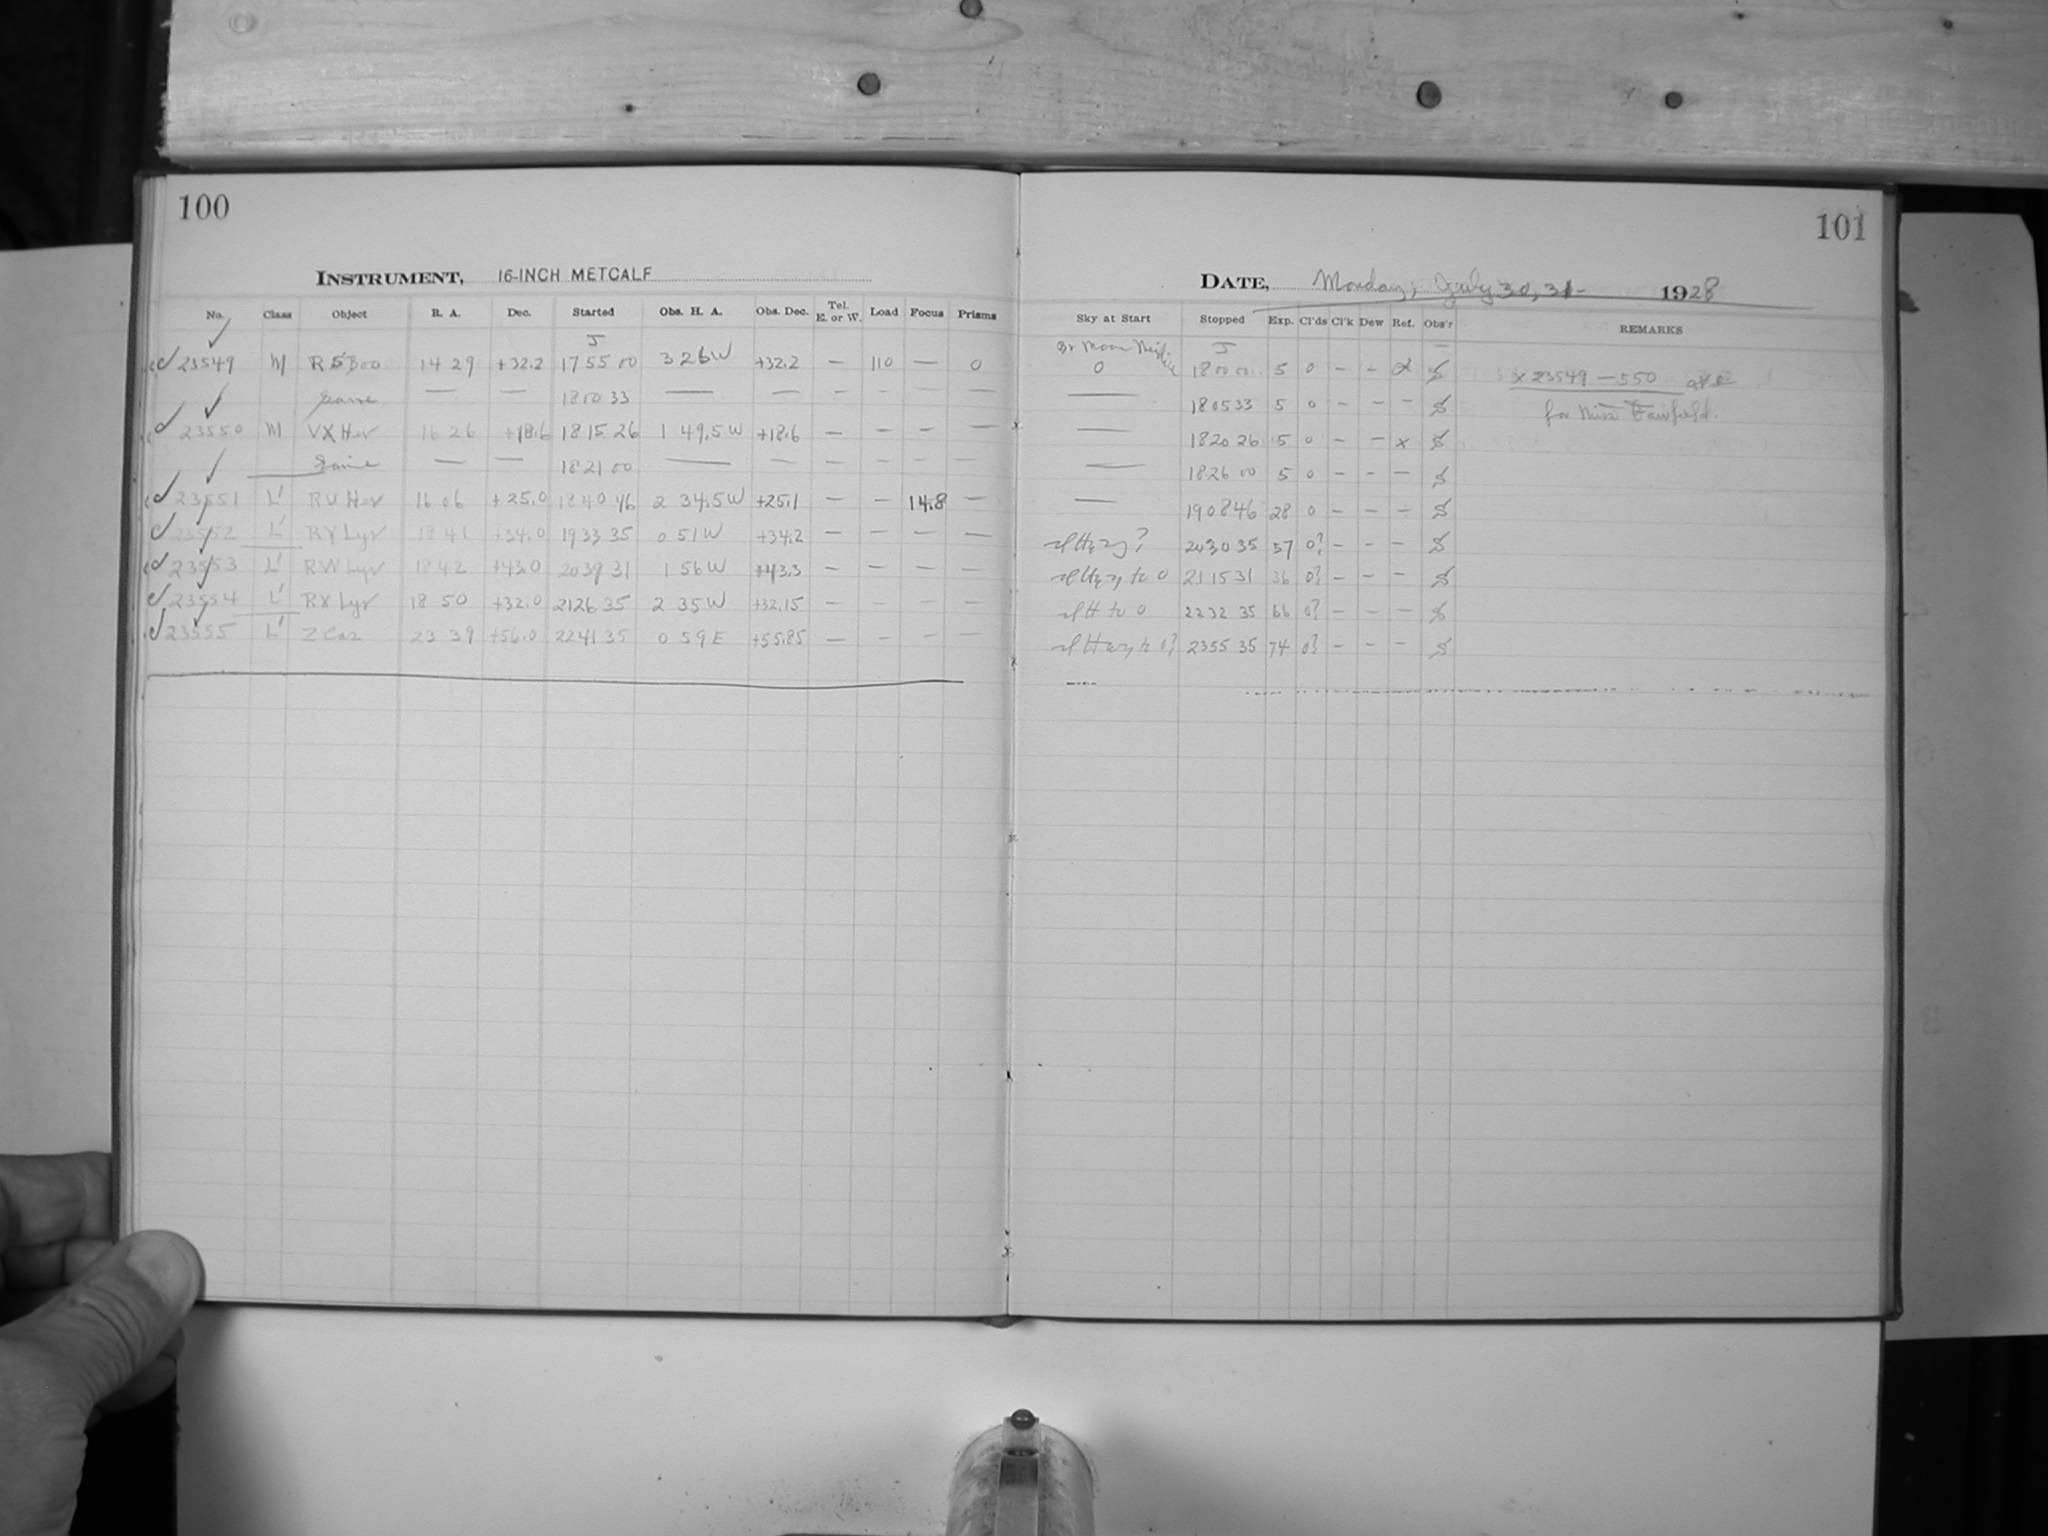 100
INSTRUMENT, 16-INCH METCALF
No. Class Object R. A. Dec. Started Obs. H. A. Obs. Dec. Tel. E. or W. Load Focus Prisms
J
23549 M RS Boo 14 29 +32.2 17 55 00 3 26 W +32.2 — 110 — 0
same — — 18 00 33 — — — — — —
23550 M VX Her 16 26 +18.6 18 15 26 1 49.5 W +18.6 — — — —
same — — 18 21 00 — — — — — —
23551 L' RU Her 16 06 +25.0 18 40 46 2 34.5 W +25.1 — — 14.8 —
23552 L' RY Lyr 18 41 +34.0 19 33 35 0 51 W +34.2 — — — —
23553 L' RW Lyr 18 42 +43.0 20 39 31 1 56 W +43.3 — — — —
23554 L' RX Lyr 18 50 +32.0 21 26 35 2 35 W +32.15 — — — —
23555 L' Z Cas 23 39 +56.0 22 41 35 0 59 E +55.85 — — — —
101
DATE, Monday, July 30, 31- 1928
Sky at Start Stopped Exp. Cl'ds Cl'k Dew Ref. Obs'r REMARKS
Br Moon J
0 18 00 00 5 0 - - x S x 23549 — 550 are
— 18 05 33 5 0 - - - S for Miss Fairfield.
— 18 20 26 5 0 - - x S
— 18 26 00 5 0 - - - S
— 19 08 46 28 0 - - - S
20 30 35 57 0? - - - S
to 0 21 15 31 36 0? - - - S
to 0 22 32 35 66 0? - - - S
to 0? 23 55 35 74 0? - - - S